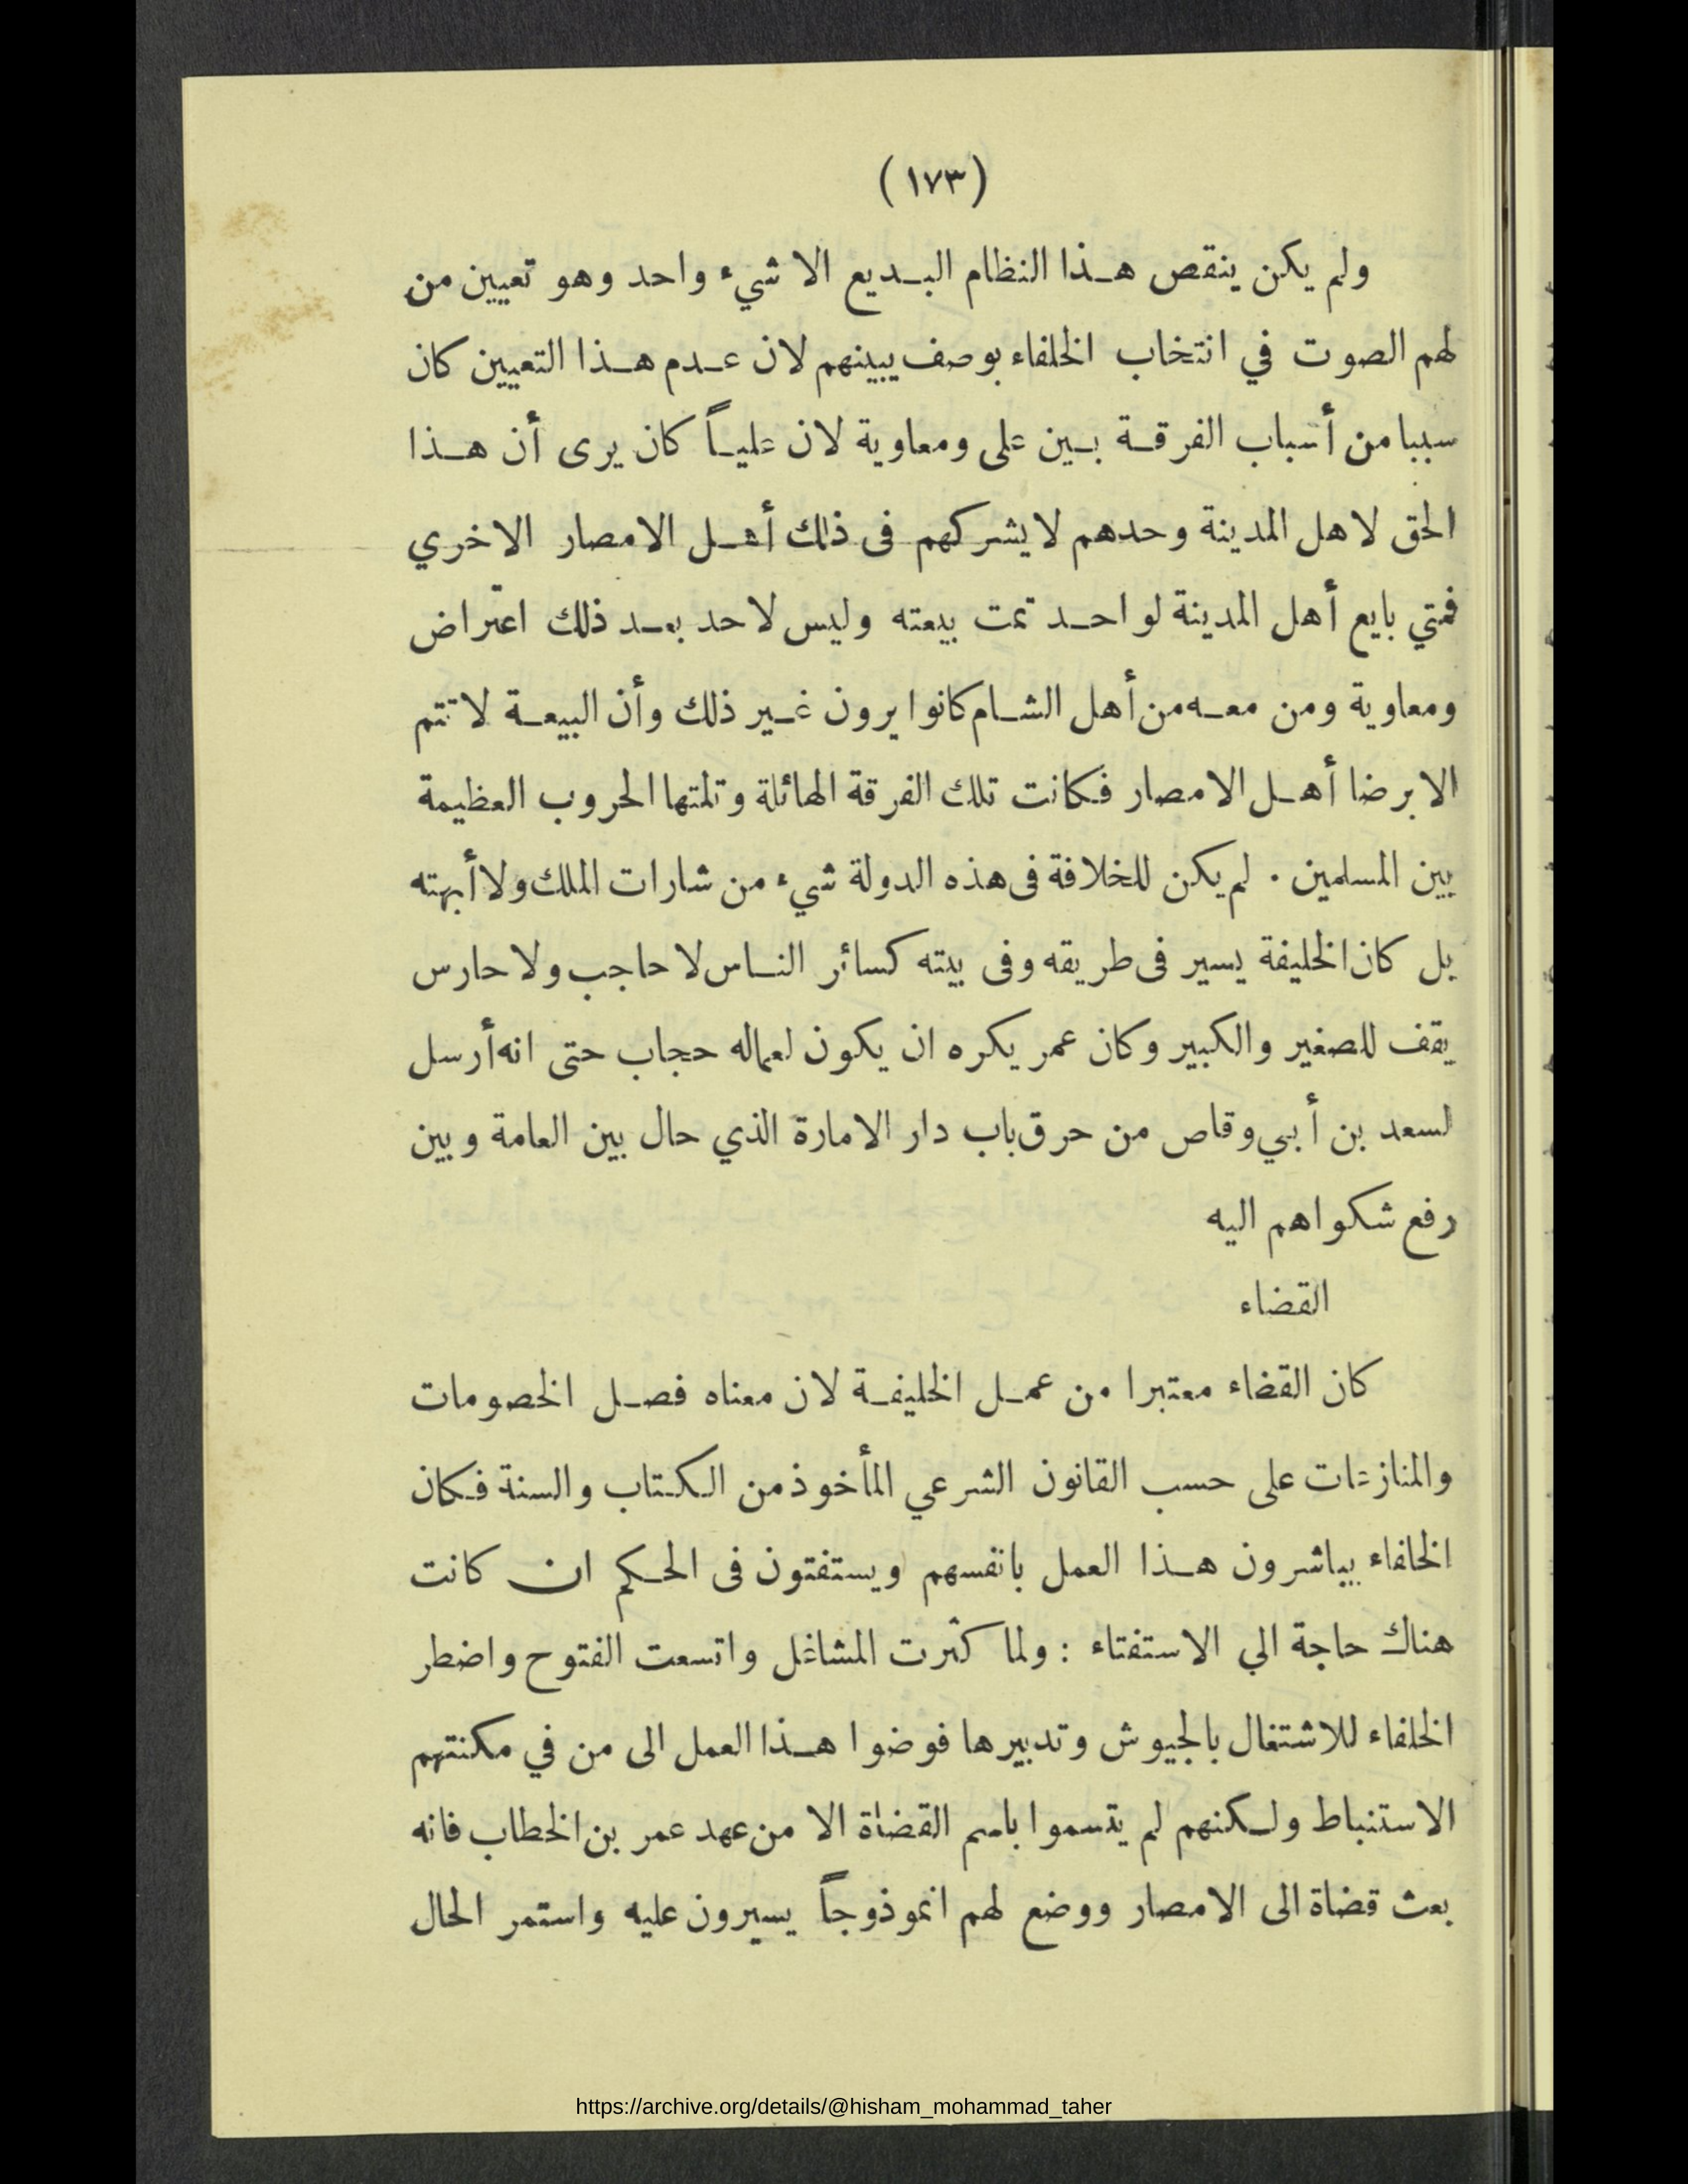 (١٧٣)
ولم يكن ينقص هذا النظام البديع الا شيء واحد وهو تعيين من
لهم الصوت في انتخاب الخلفاء بوصف يبينهم لان عدم هذا التعيين كان
سببا من أسباب الفرقة بين على ومعاوية لان علياً كان يرى أن هذا
الحق لاهل المدينة وحدهم لا يشركهم فى ذلك أهل الامصار الاخري
فمتي بايع أهل المدينة لواحد تمت بيعته وليس لاحد بعد ذلك اعتراض
ومعاوية ومن معه من أهل الشام كانوا يرون غير ذلك وأن البيعة لا تتم
الا برضا أهل الامصار فكانت تلك الفرقة الهائلة وتلتها الحروب العظيمة
بين المسلمين . لم يكن للخلافة فى هذه الدولة شيء من شارات الملك ولا أبهته
بل كان الخليفة يسير فى طريقه وفى بيته كسائر الناس لا حاجب ولا حارس
يقف للصغير والكبير وكان عمر يكره ان يكون لعماله حجاب حتى انه أرسل
لسعد بن أبي وقاص من حرق باب دار الامارة الذي حال بين العامة وبين
رفع شكواهم اليه
القضاء
كان القضاء معتبرا من عمل الخليفة لان معناه فصل الخصومات
والمنازعات على حسب القانون الشرعي المأخوذ من الكتاب والسنة فكان
الخلفاء يباشرون هذا العمل بانفسهم ويستفتون فى الحكم ان كانت
هناك حاجة الي الاستفتاء : ولما كثرت المشاغل واتسعت الفتوح واضطر
الخلفاء للاشتغال بالجيوش وتدبيرها فوضوا هذا العمل الى من في مكنتهم
الاستنباط ولكنهم لم يتسموا باسم القضاة الا من عهد عمر بن الخطاب فانه
بعث قضاة الى الامصار ووضع لهم انموذوجاً يسيرون عليه واستمر الحال
https://archive.org/details/@hisham_mohammad_taher